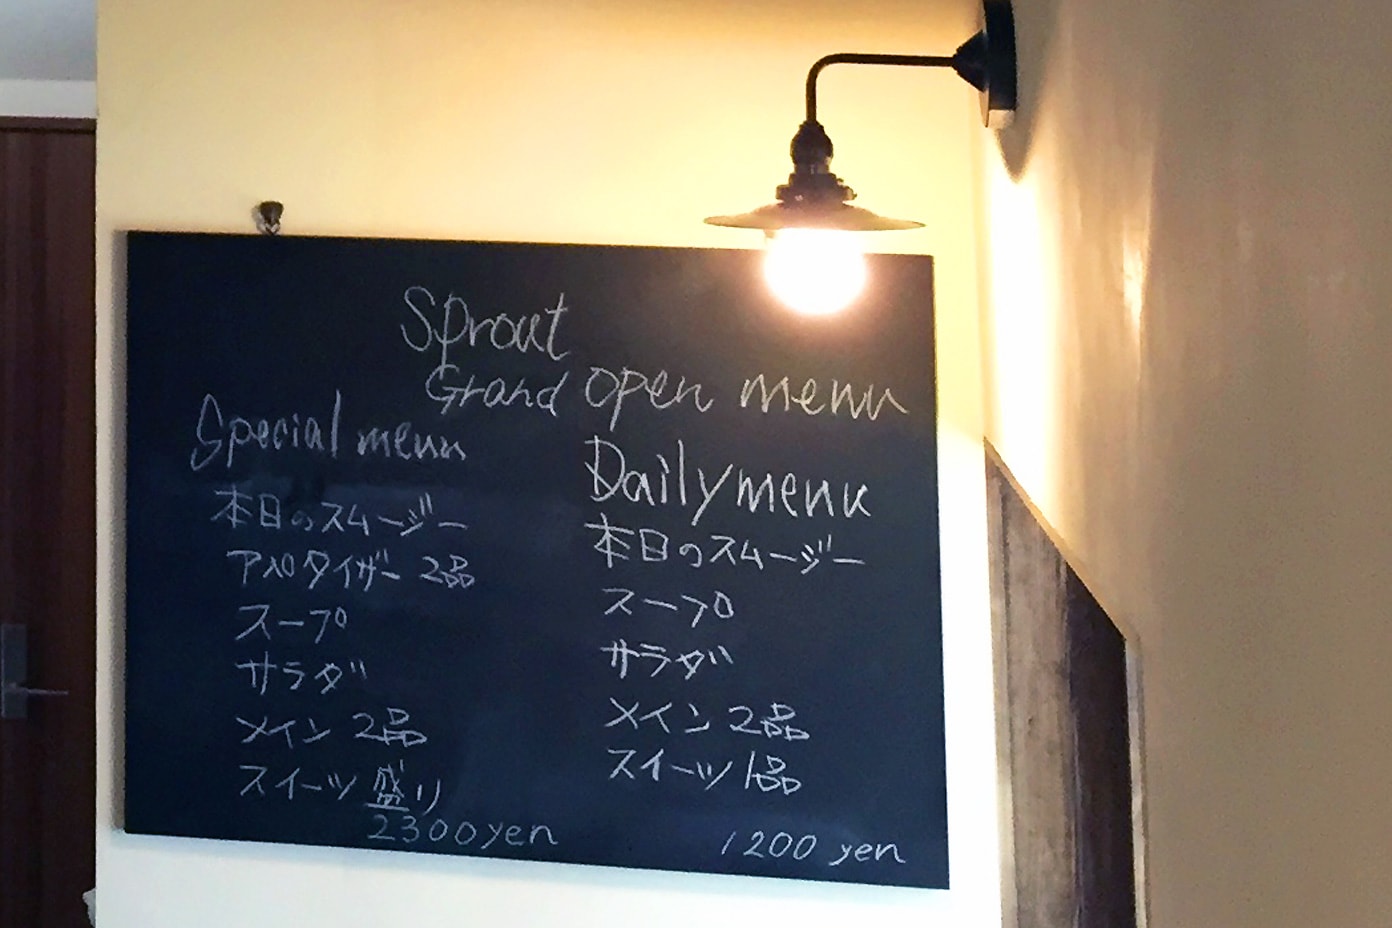 Sprout
Grand open menu
Special menu
本日のスムージー
アペロタイザー 2品
スープ
サラダ
メイン 2品
スイーツ盛り
2300yen
Daily menu
本日のスムージー
スープ
サラダ
メイン 2品
スイーツ 1品
1200 yen